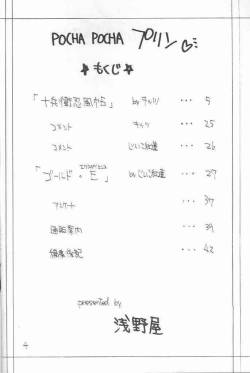 POCHA POCHA プリン
★もくじ★
「十兵衛忍風から」 by チャリ ・・・ 5
コメント チャリ ・・・ 25
コメント じいこ ・・・ 26
「ゴールド・E」 by じいこ ・・・ 27
アンケート ・・・ 37
通販案内 ・・・ 39
編集後記 ・・・ 42
presented by
浅野屋
4